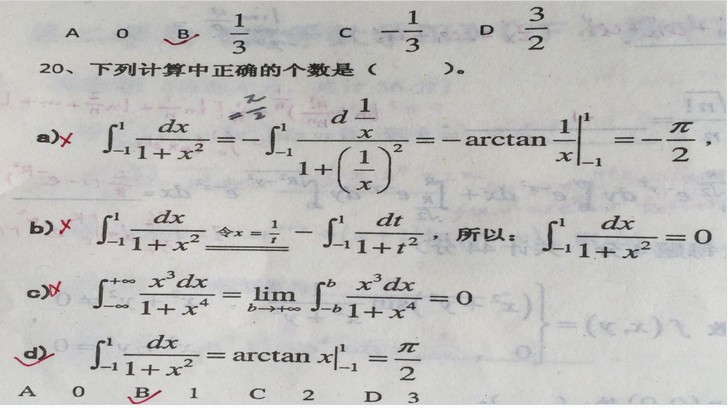 A 0 B 1/3 C -1/3 D 3/2
20、下列计算中正确的个数是( )。
= π/2
a) × ∫_{-1}^{1} dx/(1+x²) = -∫_{-1}^{1} d(1/x)/(1+(1/x)²) = -arctan 1/x |_{-1}^{1} = -π/2,
b) × ∫_{-1}^{1} dx/(1+x²) 令x=1/t -∫_{-1}^{1} dt/(1+t²), 所以: ∫_{-1}^{1} dx/(1+x²) = 0
c) × ∫_{-∞}^{+∞} x³dx/(1+x⁴) = lim_{b→+∞} ∫_{-b}^{b} x³dx/(1+x⁴) = 0
d) ∫_{-1}^{1} dx/(1+x²) = arctan x|_{-1}^{1} = π/2
A 0 B 1 C 2 D 3